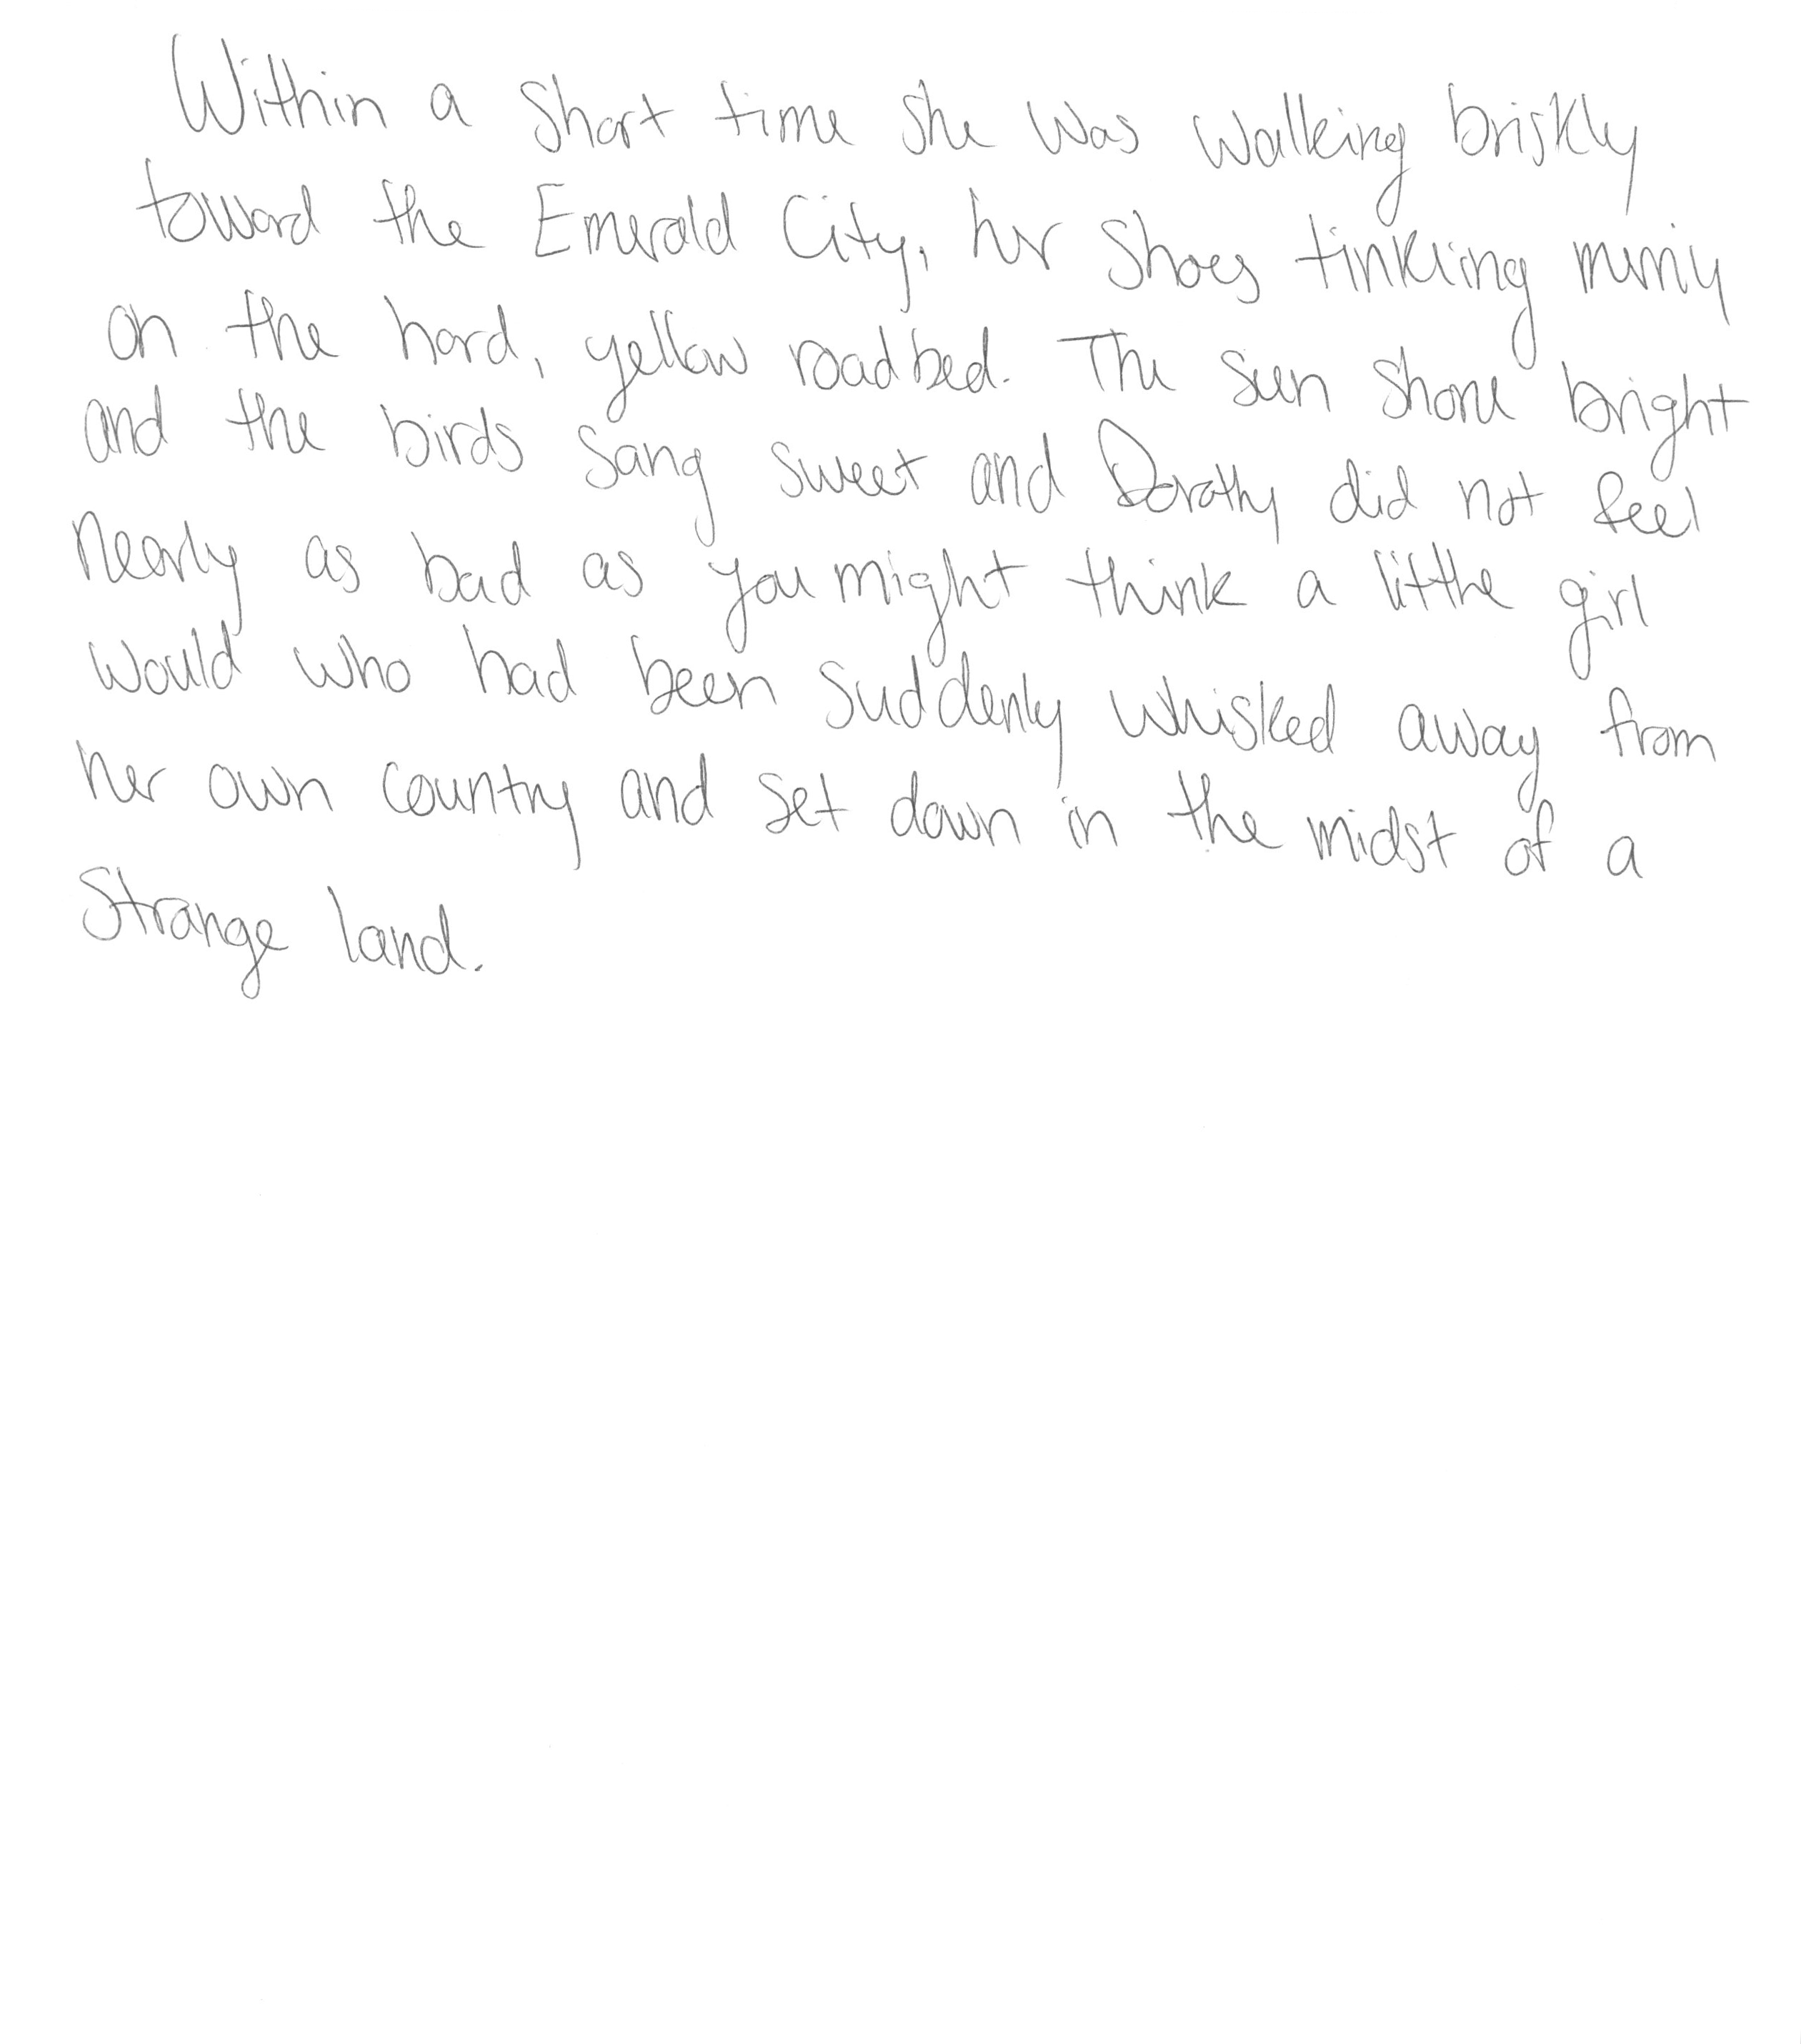 Within a short time she was walking briskly
toward the Emerald City, her shoes tinkling merrily
on the hard, yellow roadbed. The sun shone bright
and the birds sang sweet and Dorothy did not feel
nearly as bad as you might think a little girl
would who had been suddenly whisked away from
her own country and set down in the midst of a
strange land.